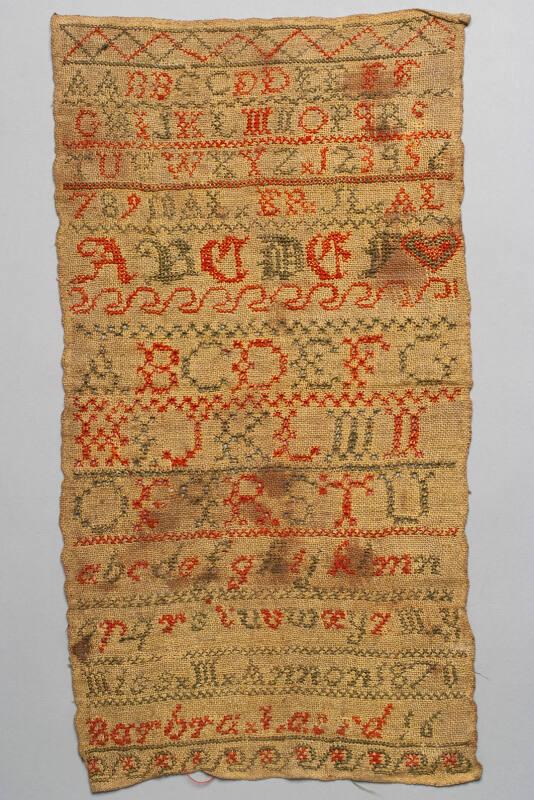 A A B B C C D D E E F F
G H I J K L M N O P Q R S
T U V W X Y Z x 1 2 3 4 5 6
7 8 9 10 A L x E R x J L x A L
A B C D E F
A B C D E F G
H I J K L M N
O P Q R S T U
a b c d e f g h i j k l m n
o p q r s t u v w x y z M
Miss x M x Annon 1870
Barbra x Laurd 16